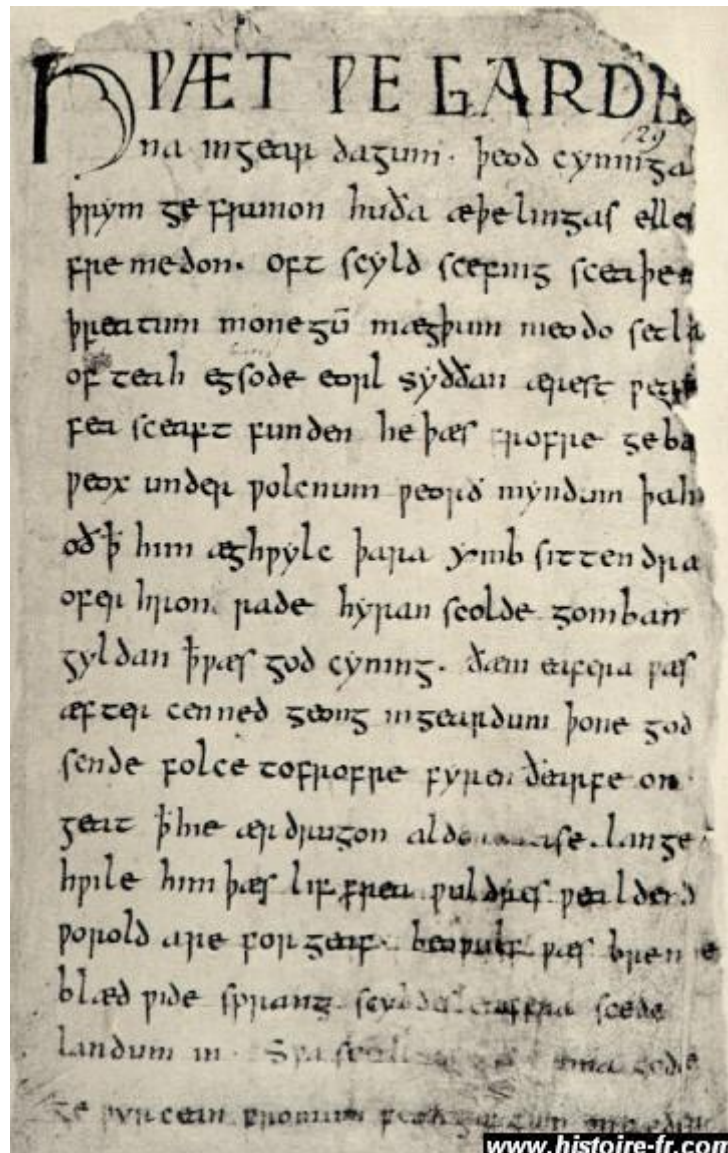 HǷÆT ǷE GARDE
129
na ingear dagum. þeod cyninga
þrym ge frunon huða æþelingas elle
fre medon. oft scyld scefing sceaþe
þreatum monegū mægþum meodo setla
of teah egsode eorl syððan ærest ƿear
fea sceaft funden he þæs frofre geba
ƿeox under ƿolcnum ƿeorð myndum þah
oð ꝥ him æghƿylc þara ymb sittendra
ofer hron rade hyran scolde gomban
gyldan ꝥ ƿæs god cyning. ðæm eafera ƿæs
æfter cenned geong ingeardum þone god
sende folce tofrofre fyren ðearfe on
geat ꝥ hie ær drugon aldor ase. lange
hƿile him þæs lif frea ƿuldres ƿealdend
ƿorold are for geaf. beoƿulf ƿæs breme
blæd ƿide sprang scyldes eafera scede
landum in. Sƿa sceal ma gode
ge ƿyrcean fromum feoh giftum
www.histoire-fr.com